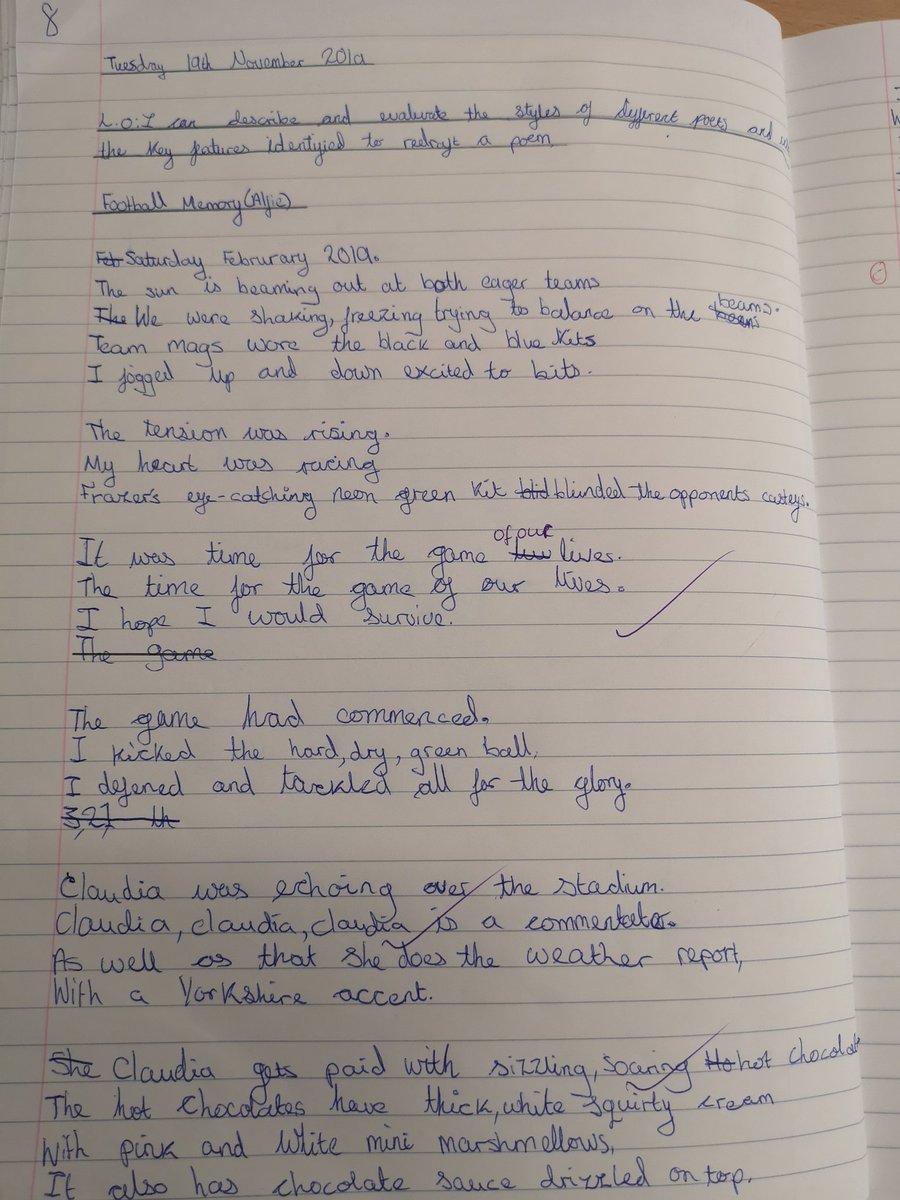 8
Tuesday 19th November 2019
L.O: I can describe and evaluate the styles of different poets and
the key fatures identified to redrayt a poem
Football Memory (Alfie)
Feb Saturday Februrary 2019.
The sun is beaming out at both eager teams
The We were shaking, freezing trying to balance on the beams.
Team mags wore the black and blue kits
I jogged up and down excited to bits.
The tension was rising.
My heart was racing
Frazer's eye-catching neon green kit blinded the opponents
It was time for the game of our lives.
The time for the game of our lives.
I hope I would survive.
The game
The game had commenced.
I kicked the hard, dry, green ball,
I defened and tackled all for the glory.
3,2,1 th
Claudia was echoing over the stadium.
Claudia, claudia, claudia is a commentator.
As well as that she does the weather report,
With a Yorkshire accent.
She Claudia gets paid with sizzling, soaring Ho hot chocolate
The hot chocolates have thick, white squirty cream
With pink and white mini marshmellows,
It also has chocolate sauce drizzled on top.